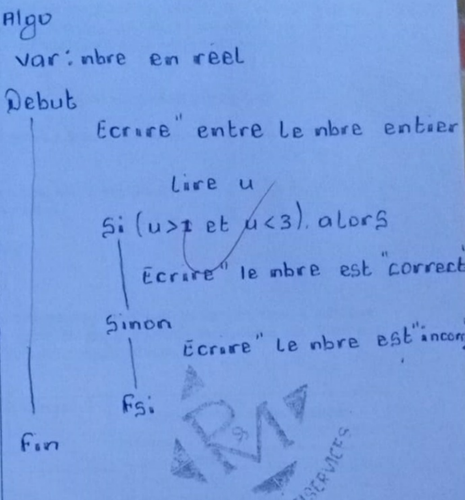 Algo
var: nbre en réel
Debut
Ecrire" entre le nbre entier
lire u
Si (u>1 et u<3). alors
Ecrire" le nbre est "correct"
Sinon
Ecrire" le nbre est"incorr
Fsi
Fin